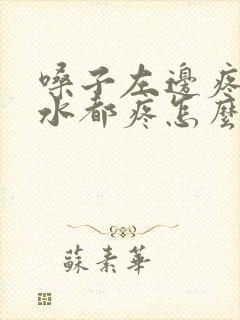 嗓子左邊疼
水都疼怎麼
蘇素華